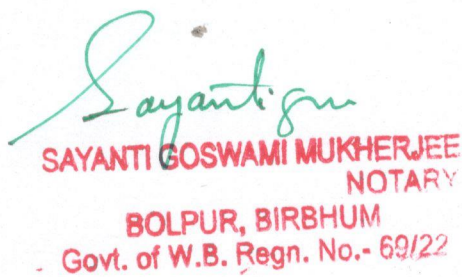 Sayantigm
SAYANTI GOSWAMI MUKHERJEE
NOTARY
BOLPUR, BIRBHUM
Govt. of W.B. Regn. No.- 69/22